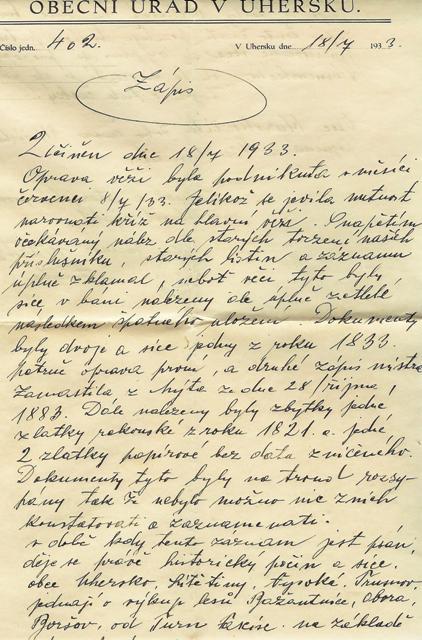 OBECNÍ ÚŘAD V UHERSKU.
Číslo jedn. 402. V Uhersku dne 18/7 1933.
Zápis
Učiněn dne 18/7 1933.
Oprava věží byla podniknuta v měsíci
červenci 8/7 /33. Jelikož se jevila nutnost
narovnati kříž na hlavní věži. S napětím
očekávaný nález dle starých tvrzení našich
příslušníků, starých listin a záznamů
úplně zklamal, neboť věci tyto byly
sice v bani nalezeny ale úplně zetlelé
následkem špatného uložení. Dokumenty
byly dvoje a sice jedny z roku 1833.
patrně oprava první, a druhé zápis mistra
Zamastila z Mýta ze dne 28/října
1883. Dále nalezeny byly zbytky jedné
zlatky rakouské z roku 1821. a jedné
2 zlatky papírové bez data zničeného.
Dokumenty tyto byly na troud rozsy-
pány tak že nebylo možno nic z nich
konstatovati a zaznamenati.
v době kdy tento záznam jest psán,
děje se právě historický počin a sice
obce Uhersko, Litětiny, Vysoké
jednají o výkup lesů Bažantnice, Obora,
Boršov, od Turn Taxise. na základě